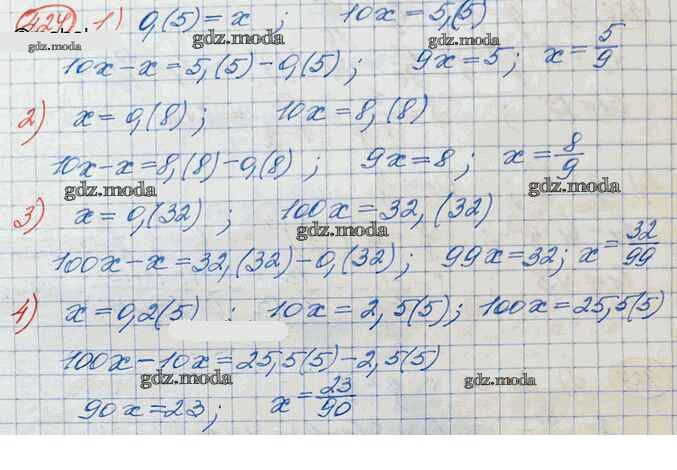 424 1) 0,(5)=x ; 10x=5,(5)
gdz.moda gdz.moda gdz.moda
10x-x=5,(5)-0,(5); 9x=5; x=5/9
2) x=0,(8); 10x=8,(8)
10x-x=8,(8)-0,(8) ; 9x=8 ; x=8/9
gdz.moda gdz.moda
3) x=0,(32) ; 100x=32,(32)
gdz.moda
100x-x=32,(32)-0,(32); 99x=32; x=32/99
4) x=0,2(5) ; 10x=2,5(5); 100x=25,5(5)
100x-10x=25,5(5)-2,5(5)
gdz.moda gdz.moda
90x=23; x=23/90